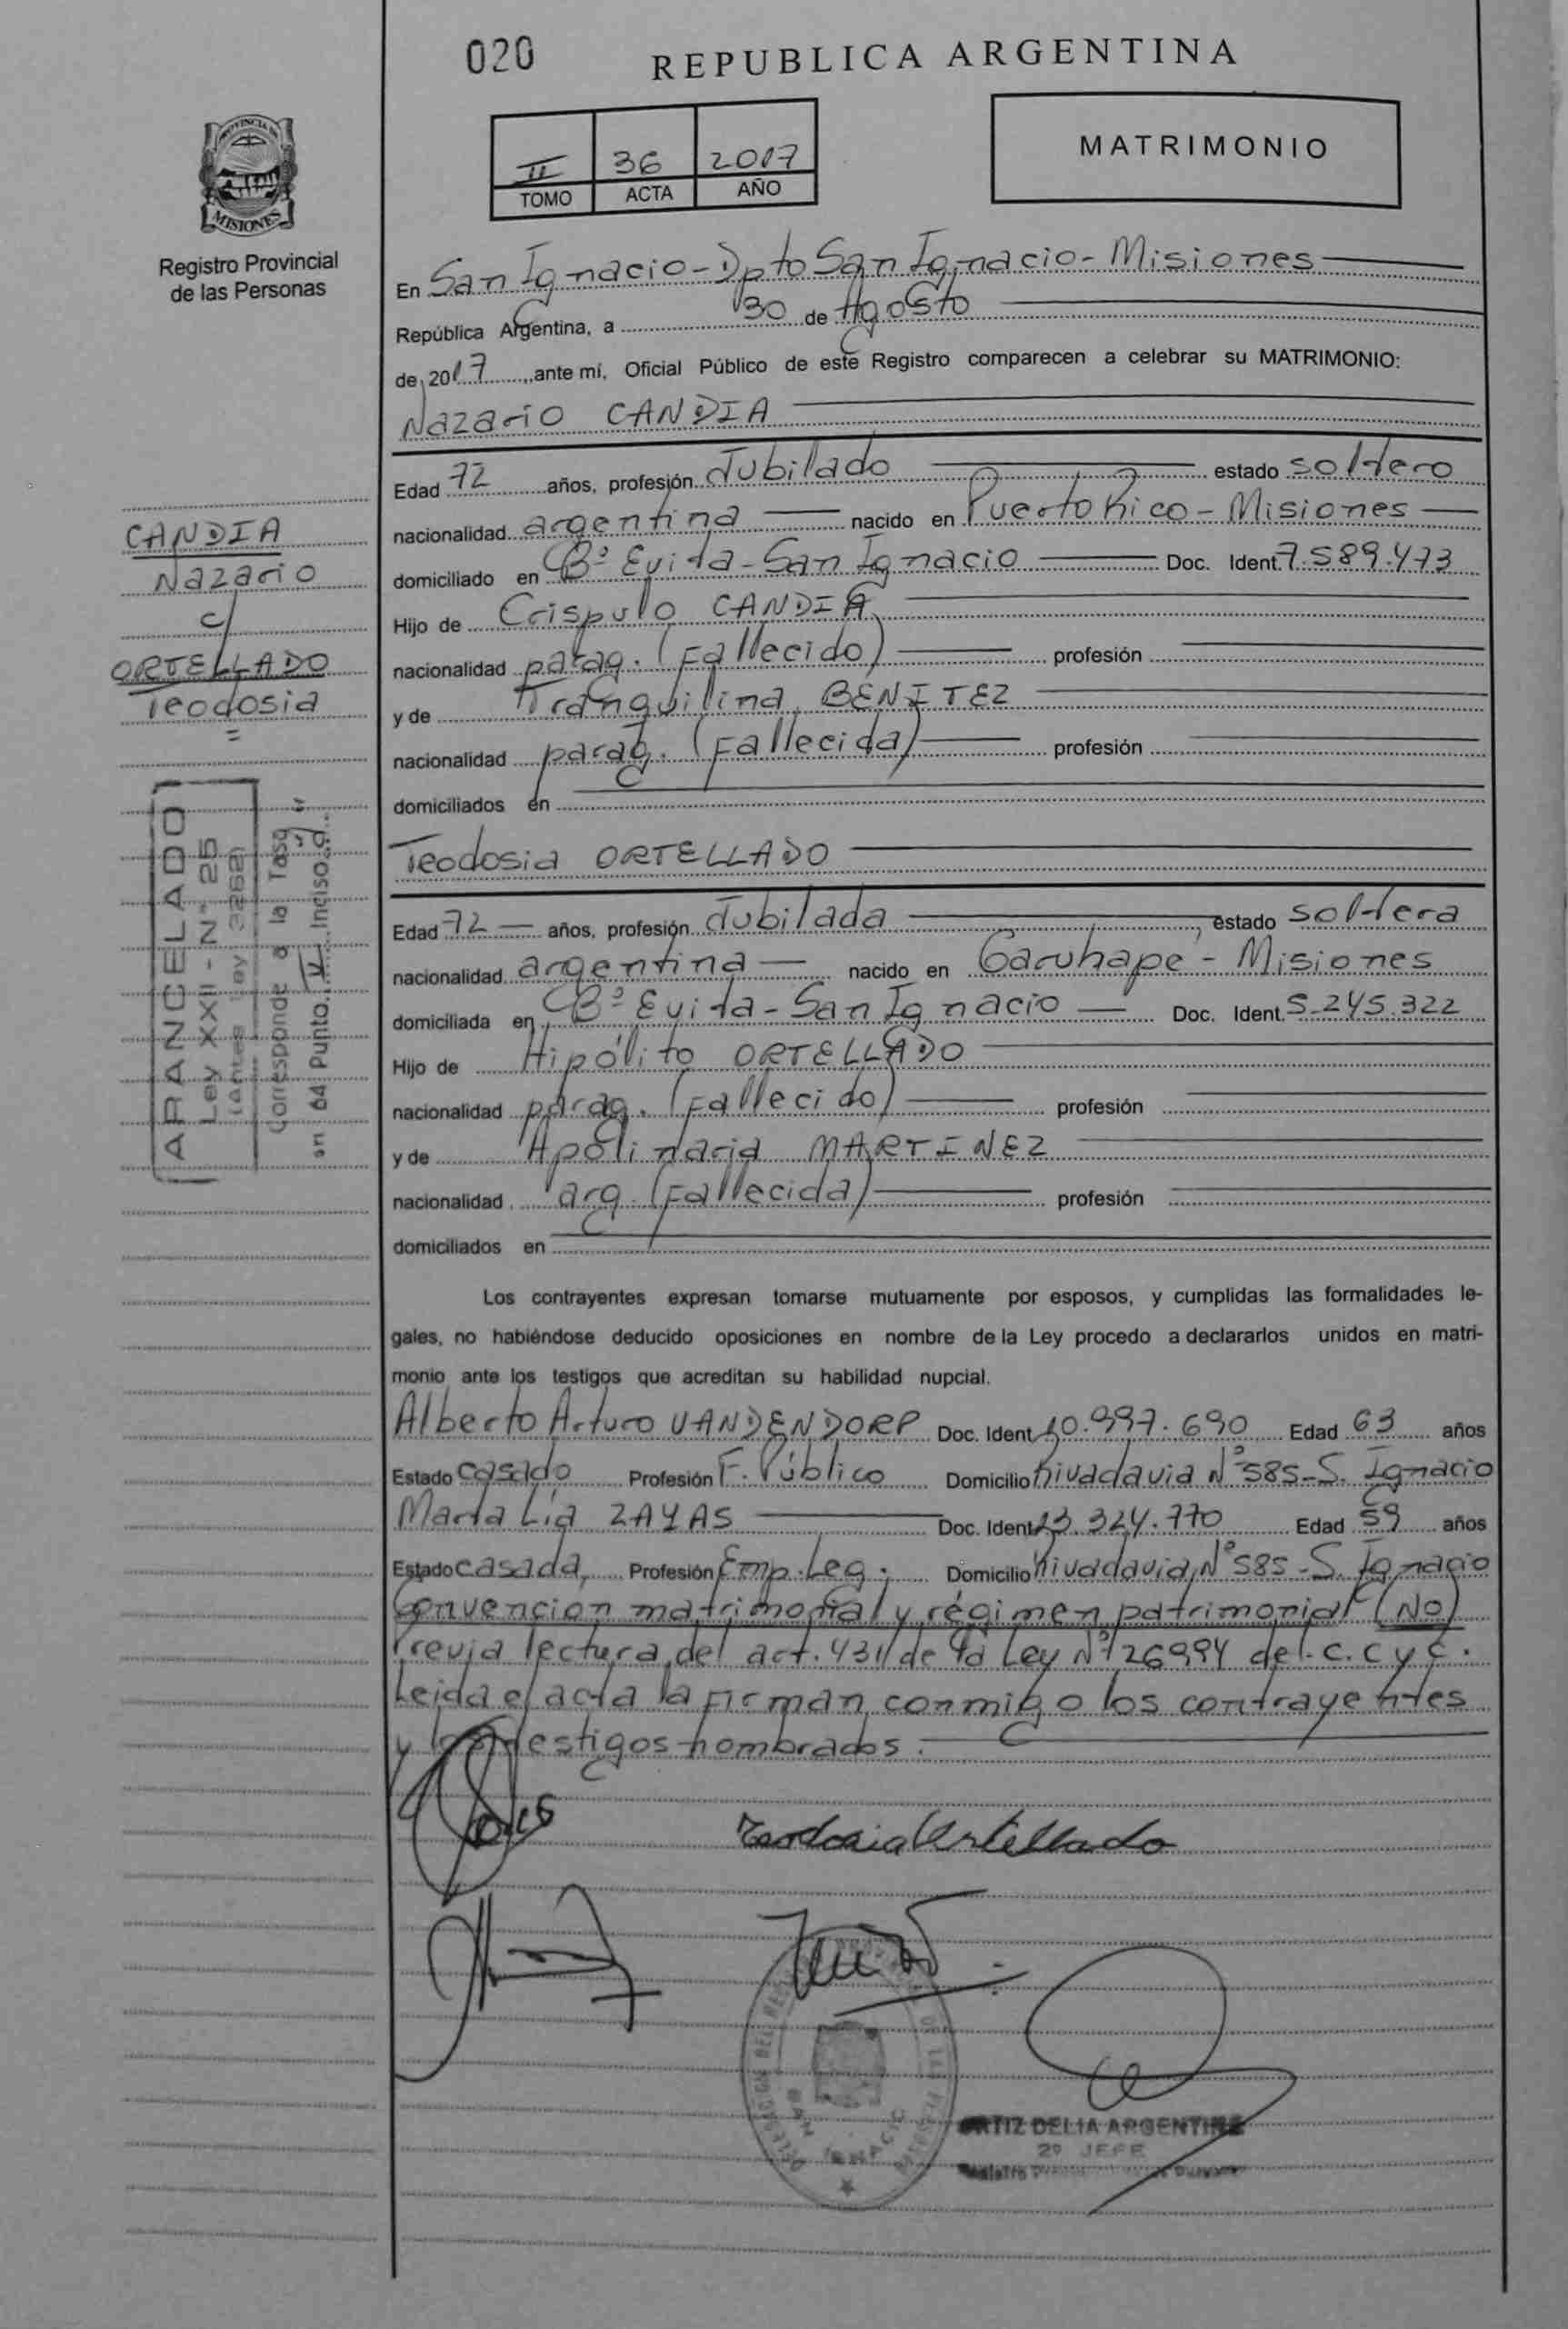 020
REPUBLICA ARGENTINA
II 36 2017
TOMO ACTA AÑO
MATRIMONIO
PROVINCIA DE
MISIONES
Registro Provincial
de las Personas
En San Ignacio - Dpto San Ignacio - Misiones
República Argentina, a 30 de Agosto
de 2017, ante mí, Oficial Público de este Registro comparecen a celebrar su MATRIMONIO:
Nazario CANDIA
Edad 72 años, profesión Jubilado estado soltero
nacionalidad argentina nacido en Puerto Rico - Misiones
domiciliado en Bº Evita - San Ignacio Doc. Ident. 7.589.473
Hijo de Crispulo CANDIA
nacionalidad parag. (Fallecido) profesión
y de Tranquilina BENITEZ
nacionalidad parag. (Fallecida) profesión
domiciliados en
Teodosia ORTELLADO
Edad 72 años, profesión Jubilada estado soltera
nacionalidad argentina nacido en Garuhape - Misiones
domiciliada en Bº Evita - San Ignacio Doc. Ident. 5.245.322
Hijo de Hipólito ORTELLADO
nacionalidad parag. (Fallecido) profesión
y de Apolinaria MARTINEZ
nacionalidad arg. (Fallecida) profesión
domiciliados en
Los contrayentes expresan tomarse mutuamente por esposos, y cumplidas las formalidades le-
gales, no habiéndose deducido oposiciones en nombre de la Ley procedo a declararlos unidos en matri-
monio ante los testigos que acreditan su habilidad nupcial.
Alberto Arturo VANDENDORP Doc. Ident. 10.997.690 Edad 63 años
Estado casado Profesión F. Público Domicilio Rivadavia Nº 585 - S. Ignacio
Marta Lía ZAYAS Doc. Ident. 13.324.770 Edad 59 años
Estado casada, Profesión Emp. Leg. Domicilio Rivadavia Nº 585 - S. Ignacio
Convencion matrimonial y régimen patrimonial (NO)
Previa lectura del art. 431 de la Ley Nº 26994 del C. C y C.
Leida el acta la firman conmigo los contrayentes
y los testigos nombrados.
Teodosia Ortellado
ORTIZ DELIA ARGENTINA
2º JEFE
SAN IGNACIO
CANDIA
Nazario
c/
ORTELLADO
Teodosia
=
ARANCELADO
Ley XXII - Nº 25
(antes Ley 3262)
Corresponde a la Tasa
en 64 Punto IV Inciso